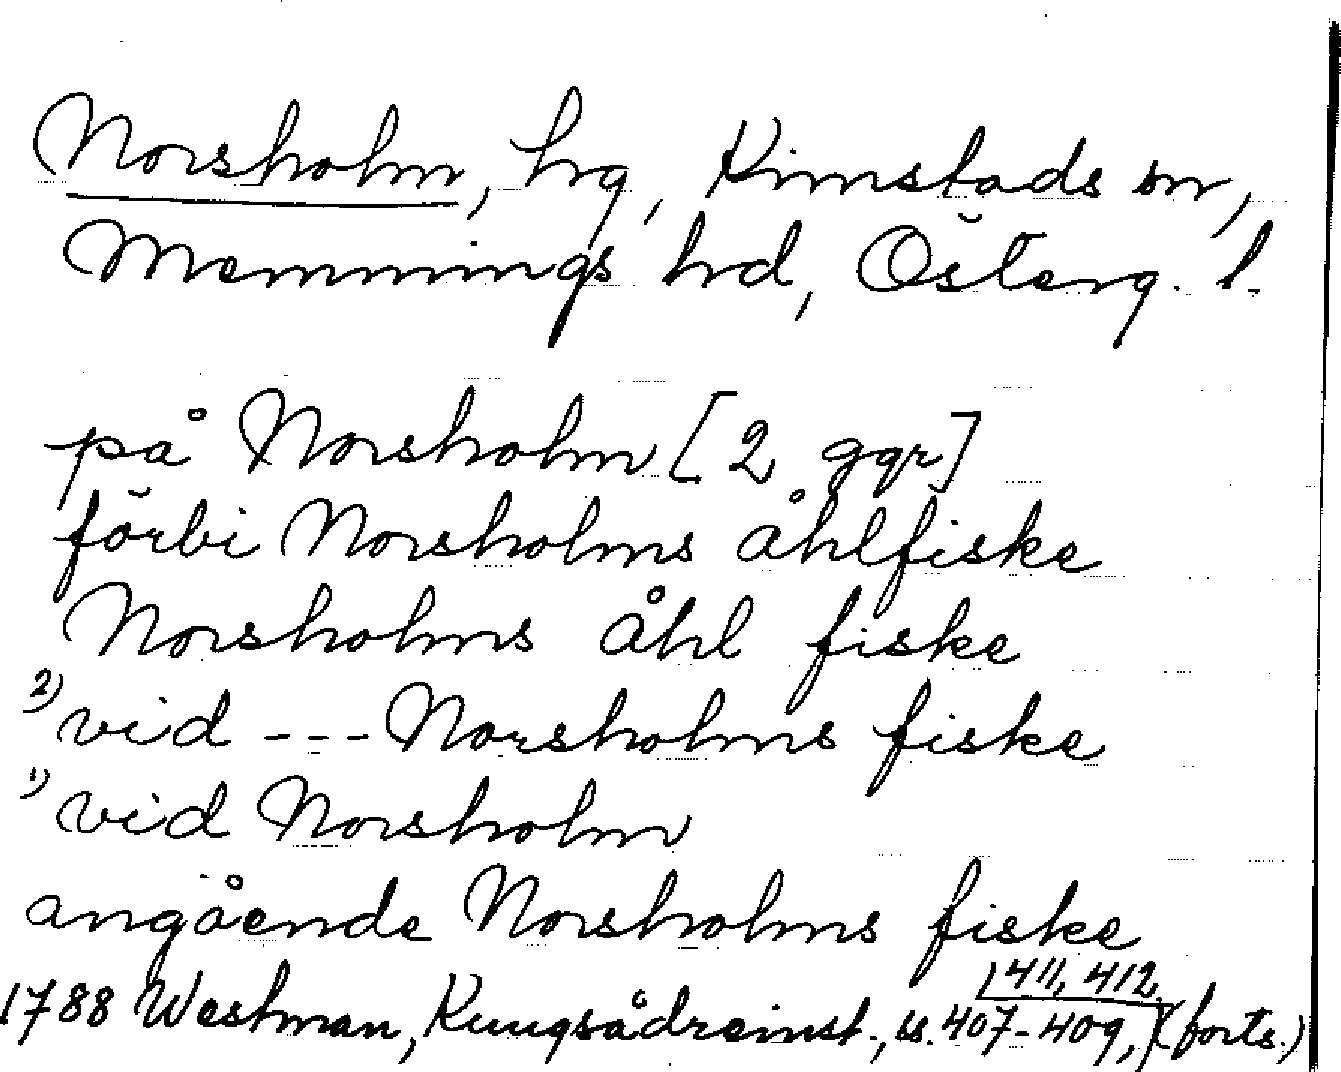 Norsholm, hg, Kimstads sn,
Memmings hrd, Österg. l.
på Norsholm [2 ggr]
förbi Norsholms åhlfiske
Norsholms åhl fiske
2) vid --- Norsholms fiske
1) vid Norsholm
angående Norsholms fiske
1788 Westman, Kungsådreinst., ss. 407-409, 411, 412, (forts.)